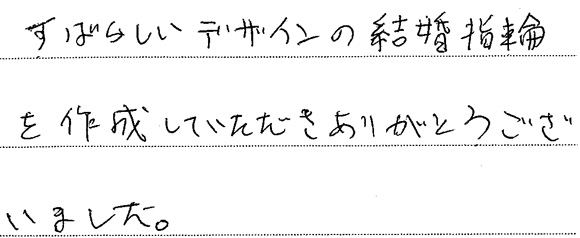 すばらしいデザインの結婚指輪
を作成していただきありがとうござ
いました。